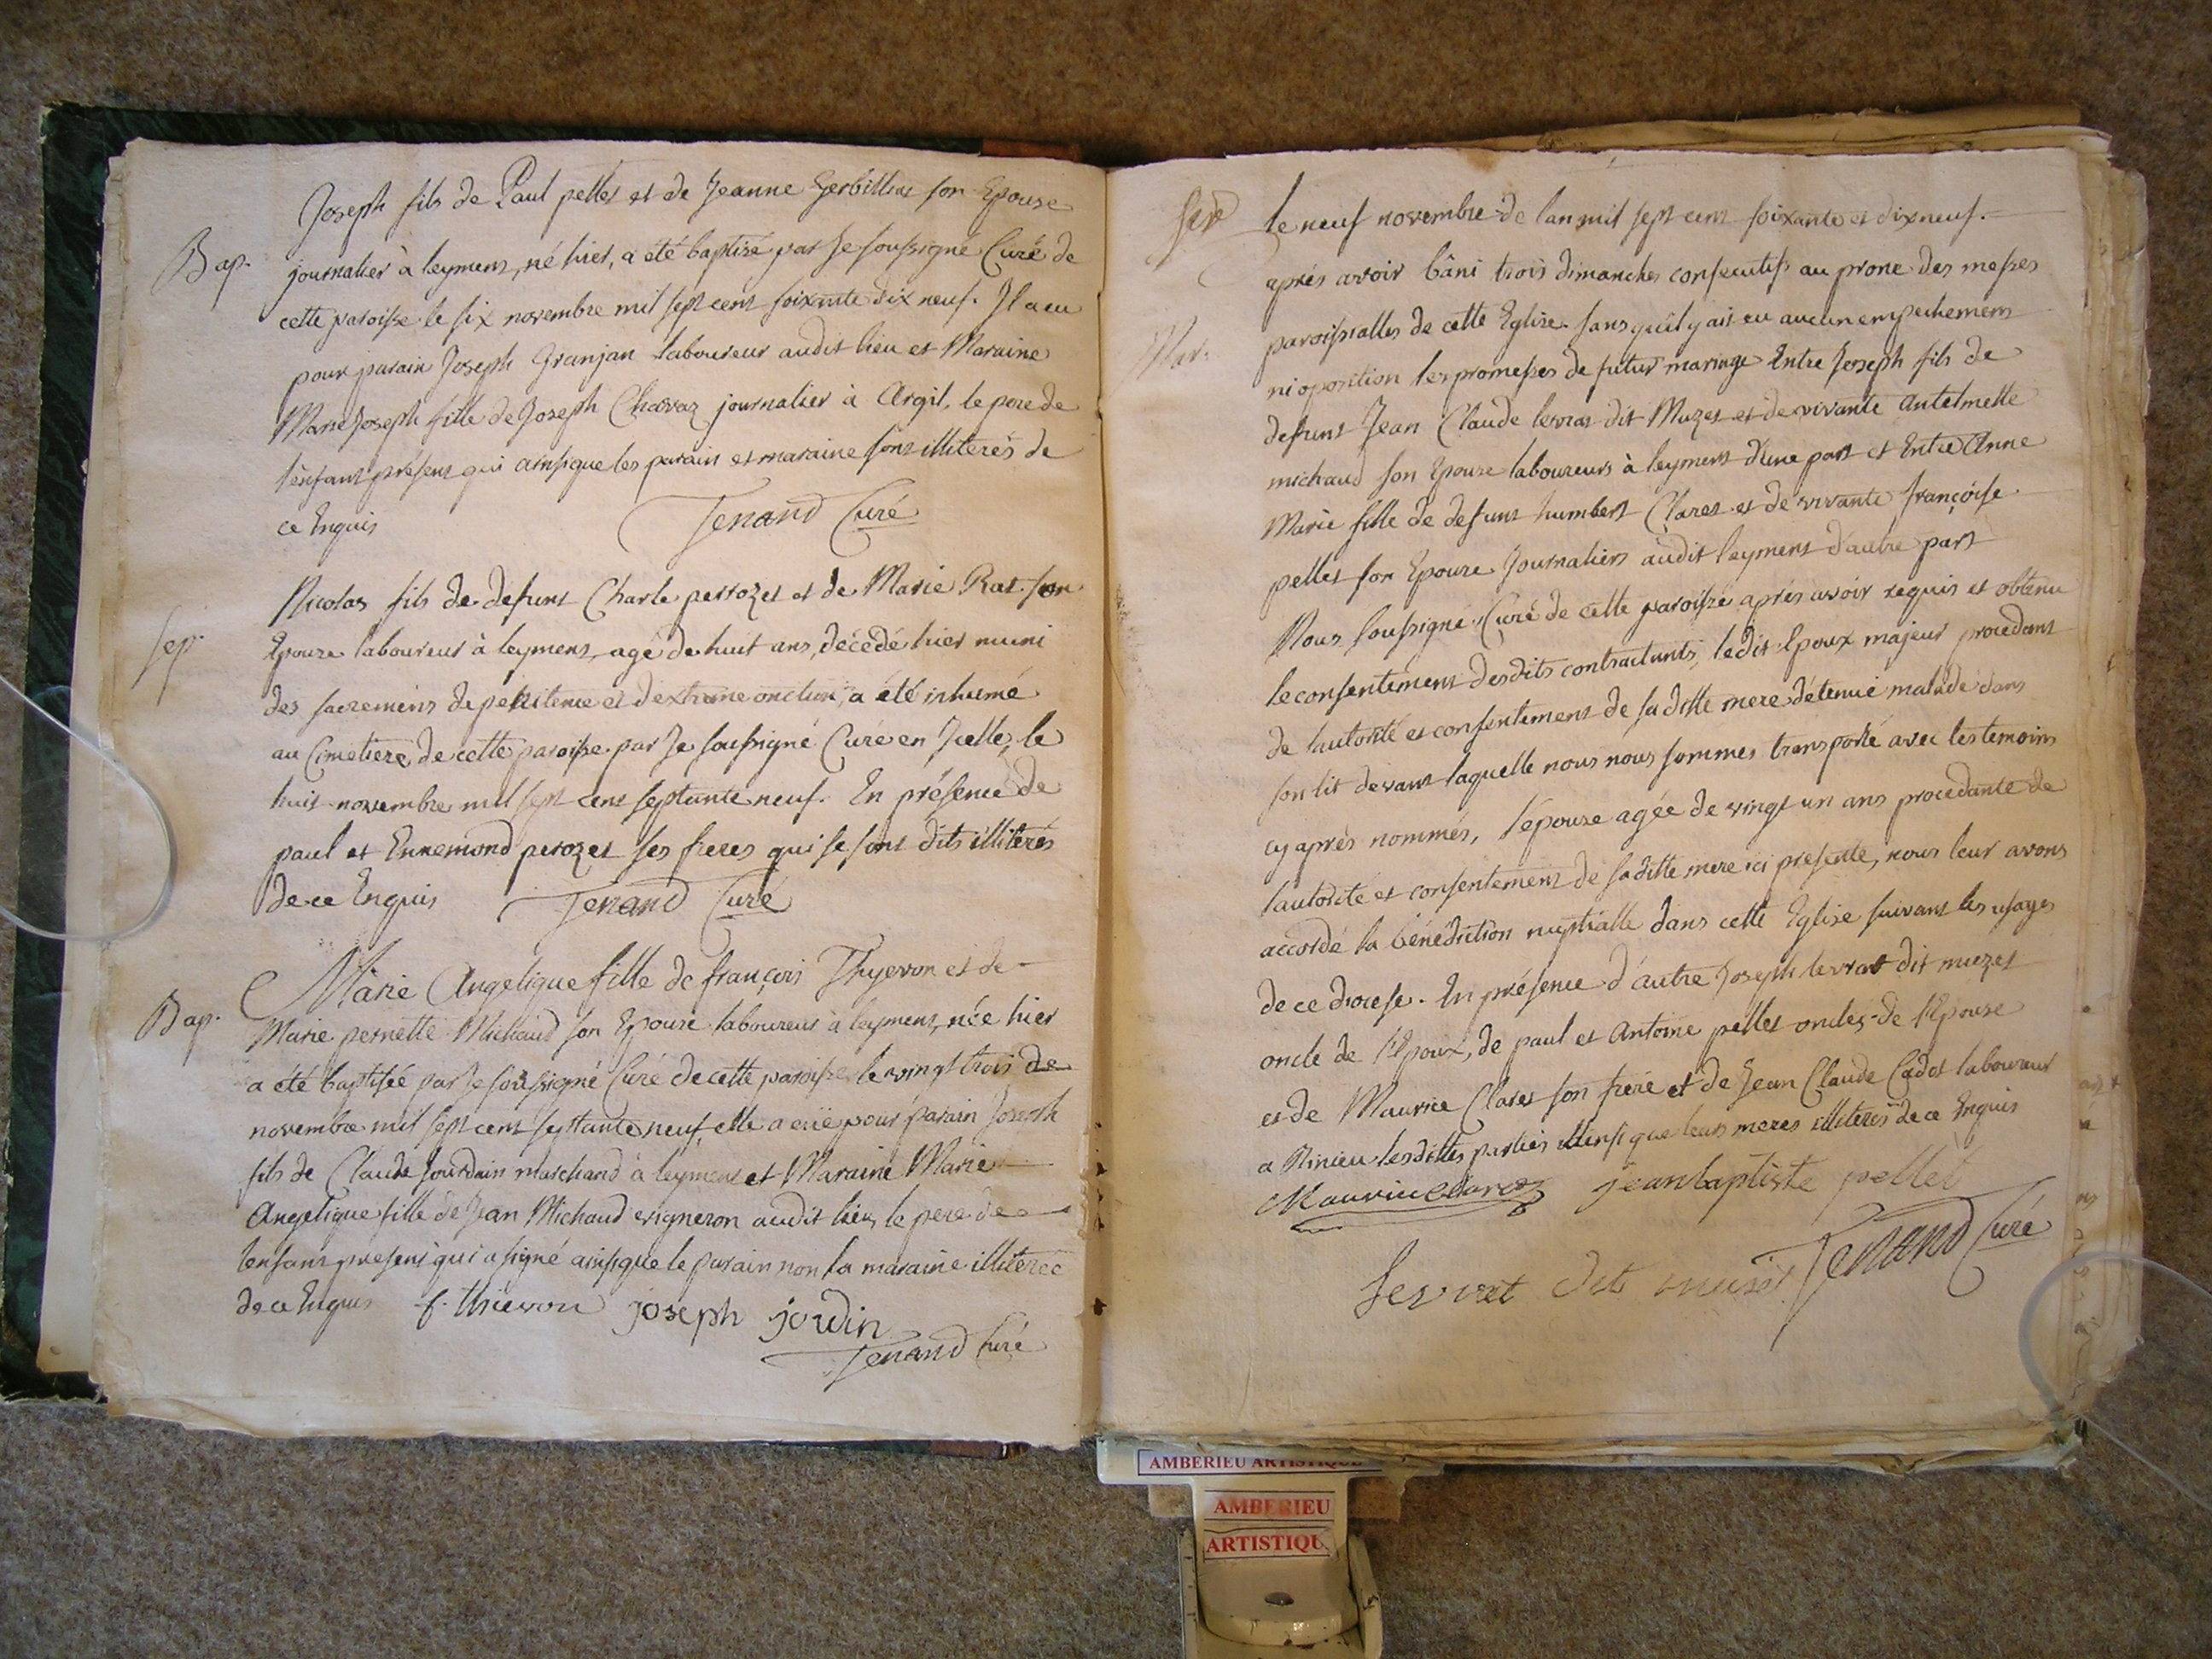 Joseph fils de Paul pellet et de Jeanne Gerbillat son Epouse
Bap. journalier à leyment, né hier, a été baptisé par Je soussigné Curé de
cette paroisse le six novembre mil sept cent soixante dix neuf. Il a eu
pour parain Joseph Granjan laboureur audit lieu et Maraine
Marie Joseph fille de Joseph Charvaz journalier à Argil, le pere de
l'enfant présent qui ainsi que les parain et maraine sont illiterés de
ce Enquis Tenand Curé
Nicolas fils de defunt Charle perrozet et de Marie Rat son
Sep. Epouse laboureur à leyment, agé de huit ans, décédé hier muni
des sacremens de pénitence et d'extrême onction, a été inhumé
au Cimetiere de cette paroisse par Je soussigné Curé en Icelle, le
huit novembre mil sept cent septante neuf. En présence de
paul et Ennemond perozet ses freres qui se sont dits illiterés
de ce Enquis Tenand Curé
Marie Angelique fille de françois Thyevon et de
Bap. Marie pernette Michaud son Epouse laboureur à leyment, née hier
a été baptisée par Je soussigné Curé de cette paroisse le vingt trois de
novembre mil sept cent septante neuf, elle a eüe pour parain Joseph
fils de Claude Jourdain marchand à leyment et Maraine Marie
Angelique fille de Jean Michaud vigneron audit lieu, le pere de
lenfant present qui a signé ainsi que le parain non la maraine illiterée
de ce Enquis f. thievon joseph jordin
Tenand Curé
le neuf novembre de lan mil sept cent soixante et dix neuf.
après avoir bâni trois dimanches consecutifs au prone des messes
Mar. paroissialles de cette Eglise sans qu'il y ait eu aucun empechement
ni oposition les promesses de futur mariage Entre Joseph fils de
defunt Jean Claude levrat dit Muzet et de vivante antelmette
michaud son Epouse laboureurs à leyment d'une part et Entre Anne
Marie fille de defunt humbert Claret et de vivante françoise
pellet son Epouse Journaliers audit leyment d'autre part
Nous soussigné Curé de cette paroisse après avoir requis et obtenu
le consentement desdits contractants, ledit Epoux majeur procedant
de lautorité et consentement de sa ditte mere détenuë malade dans
son lit devant laquelle nous nous sommes transporté avec les temoins
cy après nommés, l'épouse agée de vingt un ans procedante de
lautorité et consentement de sa ditte mere ici presente, nous leur avons
accordé la bénédiction nuptialle dans cette Eglise suivant les usages
de ce diocese. En présence d'autre Joseph levrat dit muzet
oncle de l'Epoux, de paul et Antoine pellet oncles de l'Epouse
et de Maurice Claret son frere et de Jean Claude Cadot laboureur
a Rinieu lesdittes parties ainsi que leurs meres illiterés de ce Enquis
Maurice Claret jean baptiste pellet
Levrat dit muset Tenand Curé
AMBERIEU ARTISTIQUE
AMBERIEU
ARTISTIQU